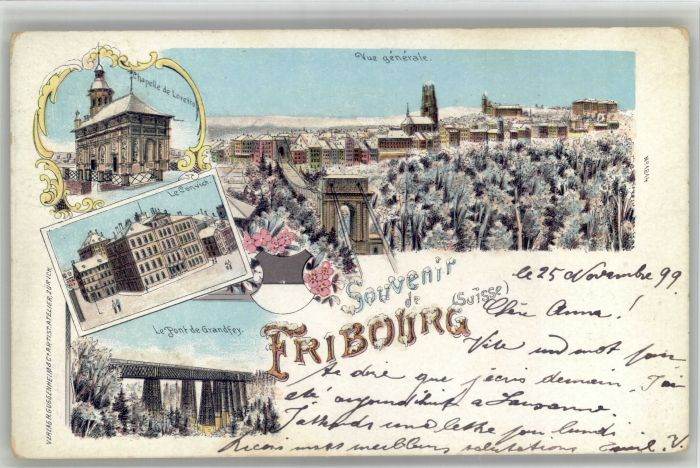 Vue générale.
Chapelle de Lorette
Le Convict
Le Pont de Grandfey.
Souvenir
de
FRIBOURG
(Suisse)
VERLAG H. GUGGENHEIM & Co ARTIST. ATELIER, ZÜRICH.
le 25 Novembre 99
Chère Anna!
Vite und mot pour
te dire que j'écris demain. J'ai
été aujourd'hui a Lausanne.
J'attends une lettre pour lundi.
Reçois mes meilleurs salutations